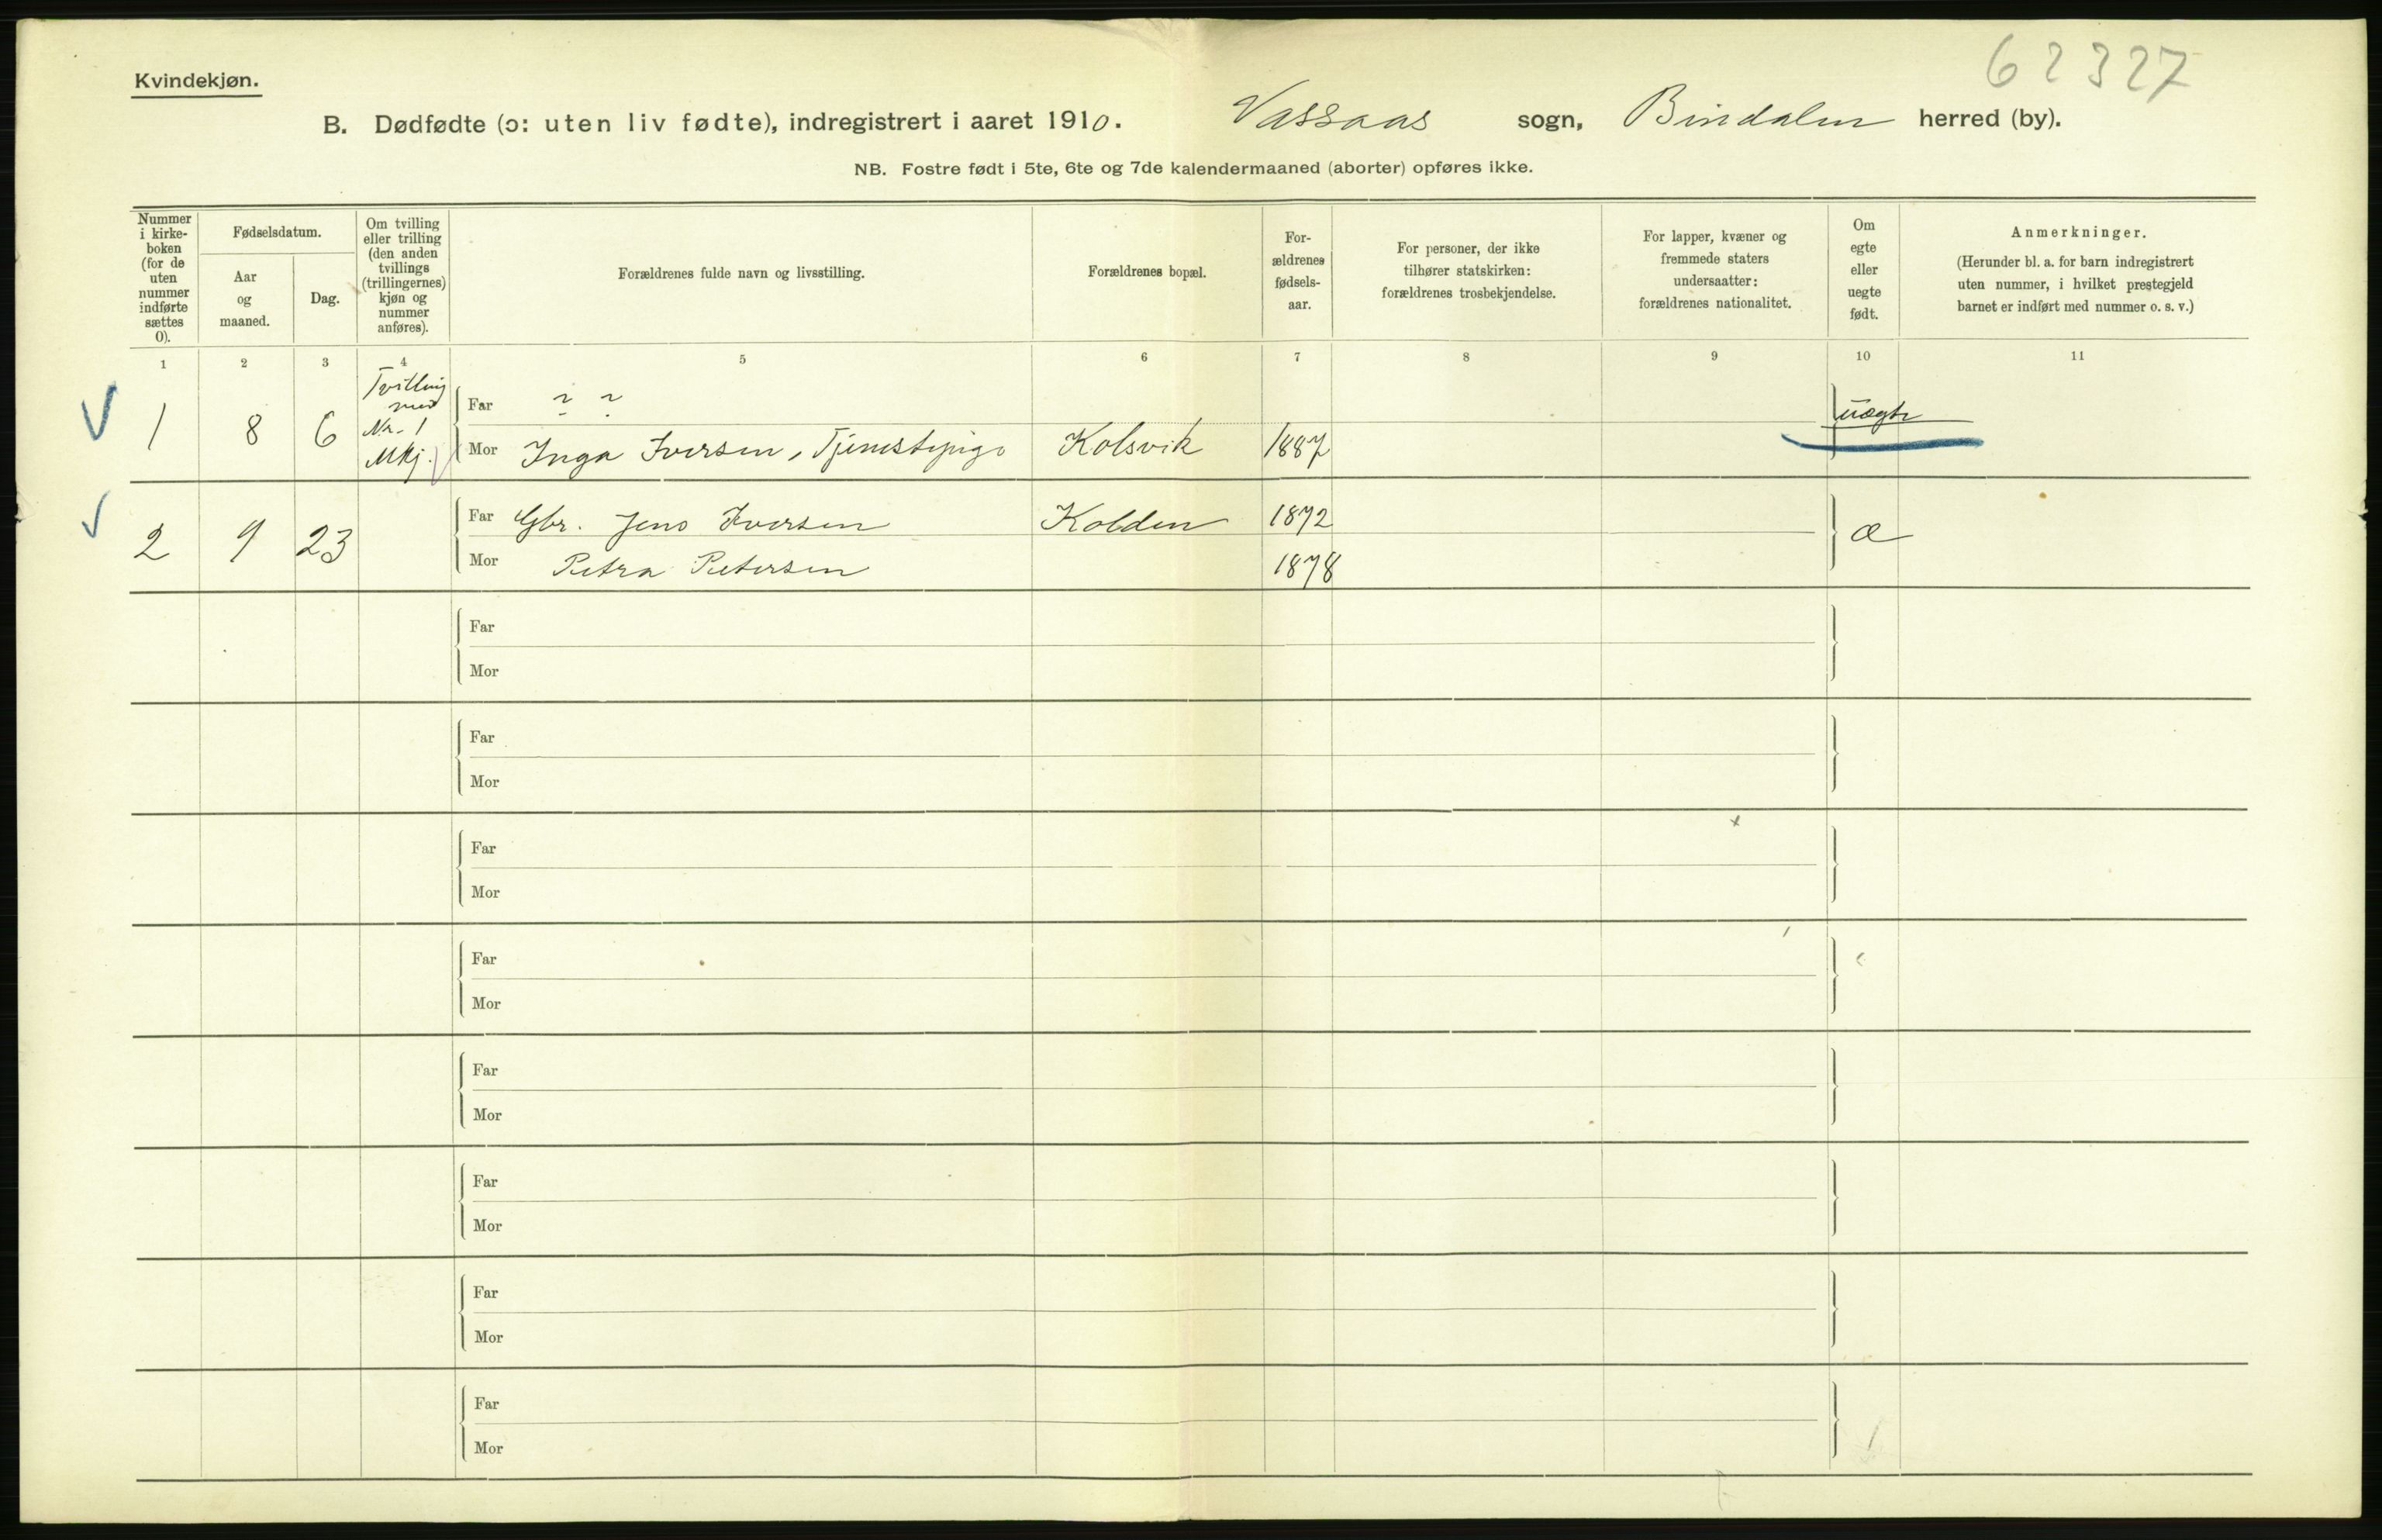 62327
Kvindekjøn.
B. Dødfødte (ɔ: uten liv fødte), indregistrert i aaret 1910. Vassaas sogn, Bindalen herred (by).
NB. Fostre født i 5te, 6te og 7de kalendermaaned (aborter) opføres ikke.
Nummer i kirke-boken (for de uten nummer indførte sættes 0).
Fødselsdatum.
Aar og maaned.
Dag.
Om tvilling eller trilling (den anden tvillings (trillingernes) kjøn og nummer anføres).
Forældrenes fulde navn og livsstilling.
Forældrenes bopæl.
For-ældrenes fødsels-aar.
For personer, der ikke tilhører statskirken: forældrenes trosbekjendelse.
For lapper, kvæner og fremmede staters undersaatter: forældrenes nationalitet.
Om egte eller uegte født.
Anmerkninger.
(Herunder bl. a. for barn indregistrert uten nummer, i hvilket prestegjeld barnet er indført med nummer o. s. v.)
1 2 3 4 5 6 7 8 9 10 11
1 8 6 Tvilling med Nr. 1 Mkj. Far ? ? uægte
Mor Inga Iversen, Tjenestepige Kolsvik 1887
2 9 23 Far Gbr. Jens Iversen Kolden 1872 æ
Mor Petra Petersen 1878
Far
Mor
Far
Mor
Far
Mor
Far
Mor
Far
Mor
Far
Mor
Far
Mor
Far
Mor